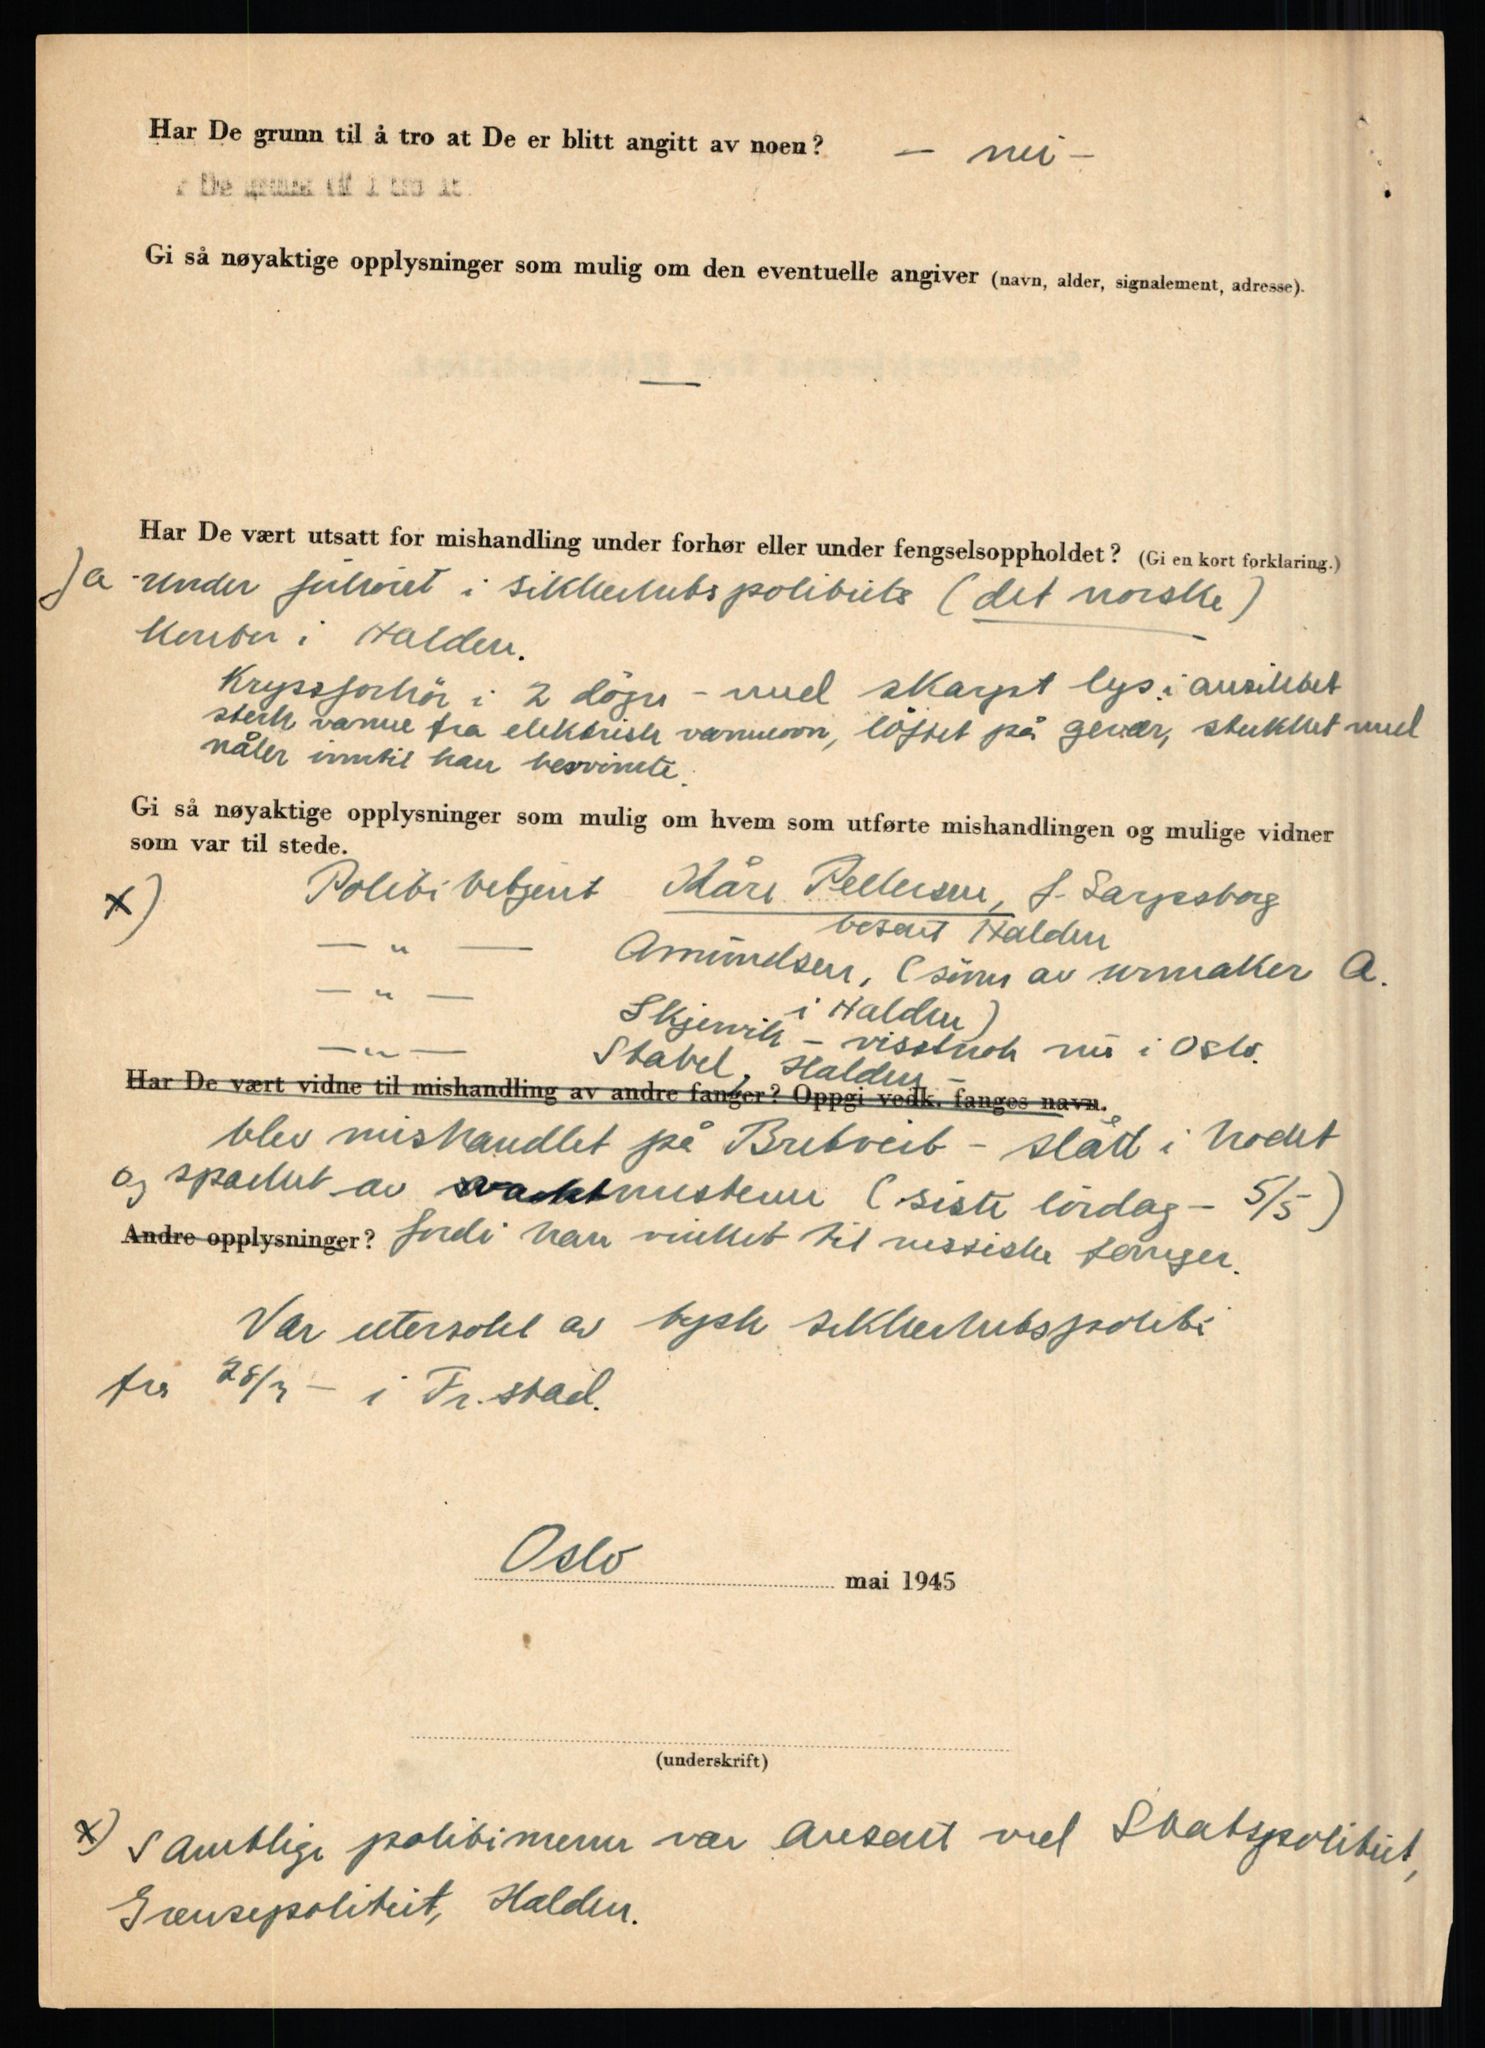 Har De grunn til å tro at De er blitt angitt av noen? – nei –
Gi så nøyaktige opplysninger som mulig om den eventuelle angiver (navn, alder, signalement, adresse).
—
Har De vært utsatt for mishandling under forhør eller under fengselsoppholdet? (Gi en kort forklaring.)
Ja - under forhöret i sikkerhetspolitiets (det norske)
kontor i Halden.
Kryssforhör i 2 dögn – med skarpt lys i ansiktet
sterk varme fra elektrisk varmeovn, löftet på gevær, stukket med
nåler inntil han besvimte.
Gi så nøyaktige opplysninger som mulig om hvem som utførte mishandlingen og mulige vidner
som var til stede.
x) Politibetjent Kåre Pettersen, f. Sarpsborg
bosatt Halden
— " — Amundsen, (sönn av urmaker A.
i Halden)
— " — Skjenvik – visstnok nu i Oslo.
— " — Stabel, Halden –
Har De vært vidne til mishandling av andre fanger? Oppgi vedk. fanges navn.
blev mishandlet på Bretveit – slått i hodet
og sparket av vaktmesteren (siste lördag – 5/5)
Andre opplysninger? fordi han vinket til russiske fanger.
Var ettersökt av tysk sikkerhetspoliti
fra 28/3 – i Fr.stad.
Oslo mai 1945
(underskrift)
x) Samtlige politimenn var ansatt ved Statspolitiet,
Grensepolitiet, Halden.